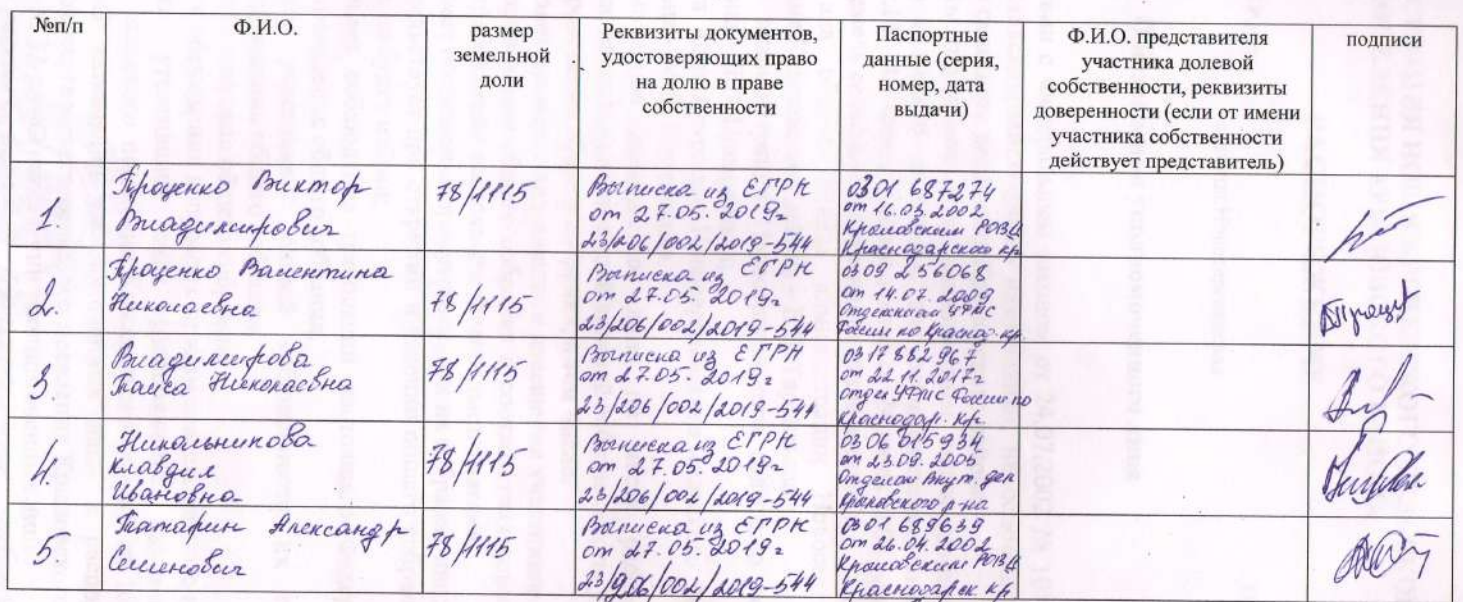 №п/п
Ф.И.О.
размер
земельной
доли
Реквизиты документов,
удостоверяющих право
на долю в праве
собственности
Паспортные
данные (серия,
номер, дата
выдачи)
Ф.И.О. представителя
участника долевой
собственности, реквизиты
доверенности (если от имени
участника собственности
действует представитель)
подписи
1.
Проценко Виктор
Владимирович
78/1115
Выписка из ЕГРН
от 27.05.2019г
23/206/002/2019-544
0301 687274
от 16.03.2002
Крыловским РОВД
Краснодарского кр
2.
Проценко Валентина
Николаевна
78/1115
Выписка из ЕГРН
от 27.05.2019г
23/206/002/2019-544
0309 256068
от 14.07.2009
Отделением УФМС
России по Краснод. кр.
3.
Владимирова
Таиса Николаевна
78/1115
Выписка из ЕГРН
от 27.05.2019г
23/206/002/2019-544
0317 882967
от 22.11.2017г
отдел УФМС России по
Краснодар. кр.
4.
Никольникова
Клавдия
Ивановна
78/1115
Выписка из ЕГРН
от 27.05.2019г
23/206/002/2019-544
0306 015934
от 23.09.2005
Отделом Внут. дел
Крыловского р-на
5.
Татарин Александр
Семенович
78/1115
Выписка из ЕГРН
от 27.05.2019г
23/206/002/2019-544
0301 689639
от 26.04.2002
Крыловским РОВД
Краснодарск кр